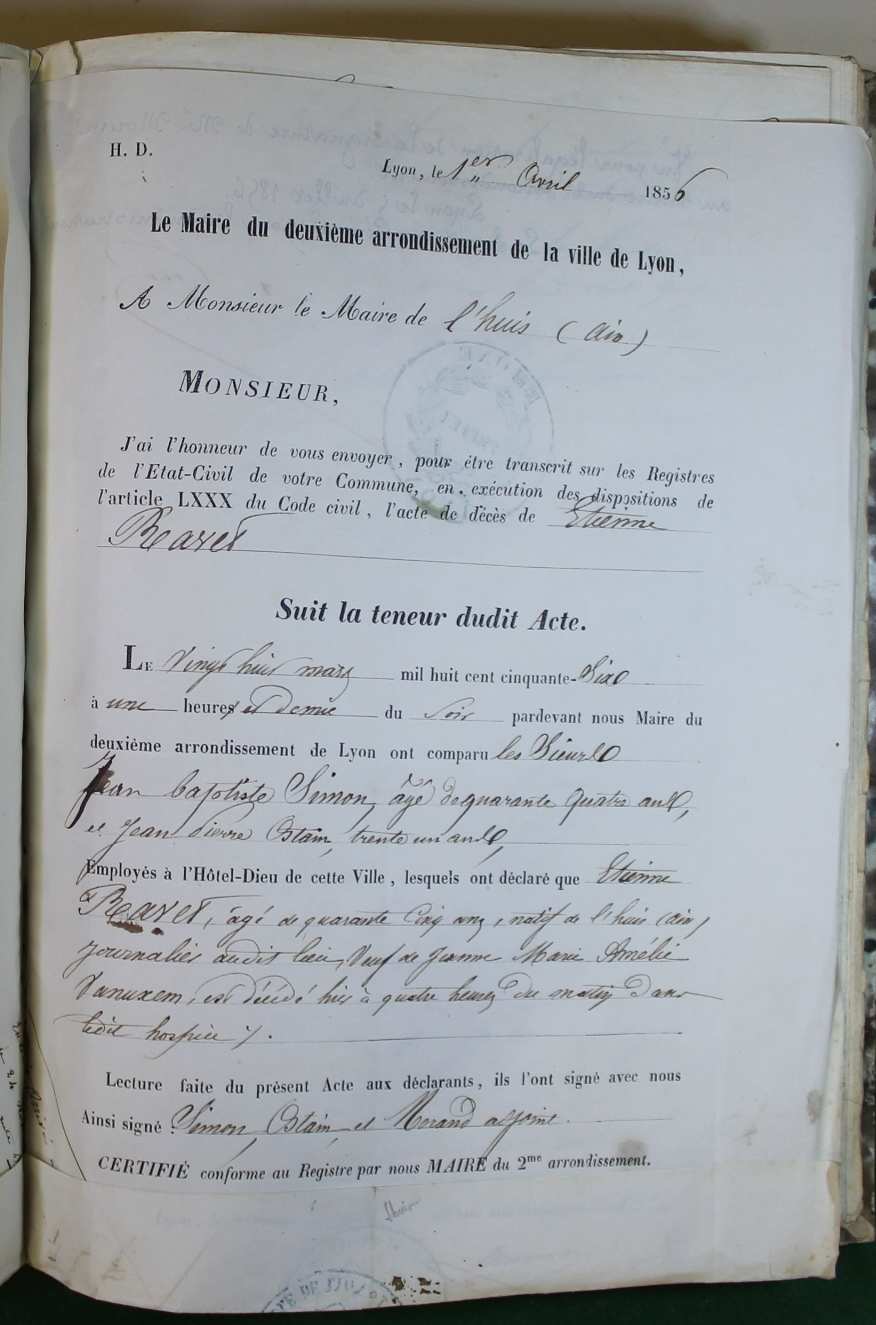 H. D.
Lyon, le 1er Avril 1856
Le Maire du deuxième arrondissement de la ville de Lyon,
A Monsieur le Maire de l'huis (ain)
MONSIEUR,
J'ai l'honneur de vous envoyer, pour être transcrit sur les Registres
de l'Etat-Civil de votre Commune, en exécution des dispositions de
l'article LXXX du Code civil, l'acte de décès de Etienne
Ravet
Suit la teneur dudit Acte.
LE Vingt huit mars mil huit cent cinquante-Six
à une heures et demie du Soir pardevant nous Maire du
deuxième arrondissement de Lyon ont comparu les Sieurs
Jean baptiste Simon, âgé de quarante quatre ans,
et Jean Pierre Ostain, trente un ans,
Employés à l'Hôtel-Dieu de cette Ville, lesquels ont déclaré que Etienne
Ravet, âgé de quarante Cinq ans, natif de l'huis (ain)
journalier audit lieu, Veuf de Jeanne Marie Amélie
Vanuxem, est décédé hier à quatre heures du matin Dans
ledit hospice /.
Lecture faite du présent Acte aux déclarants, ils l'ont signé avec nous
Ainsi signé : Simon, Ostain, et Morand adjoint.
CERTIFIÉ conforme au Registre par nous MAIRE du 2me arrondissement.